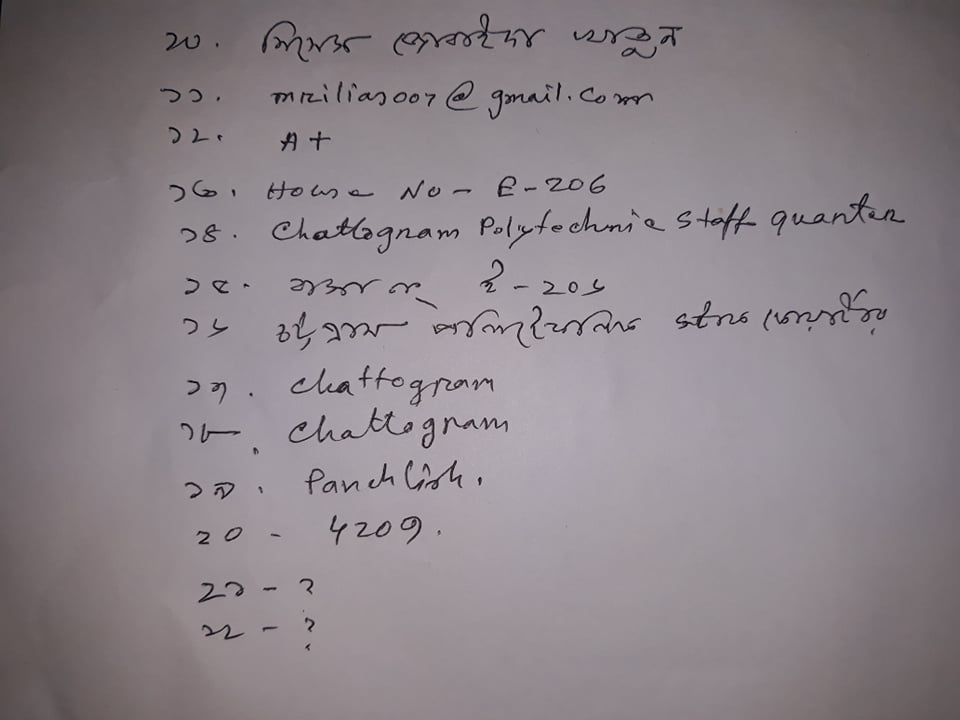 ১০. মিসেস জোবাইদা খাতুন
১১. mrilias007@gmail.com
১২. A+
১৩. House No - E-206
১৪. Chattogram Polytechnic Staff quarter
১৫. বাসা নং ই-২০৬
১৬ চট্টগ্রাম পলিটেকনিক স্টাফ কোয়ার্টার
১৭. Chattogram
১৮. Chattogram
১৯. Panchlish.
২০ - 4209.
২১ - ?
২২ - ?